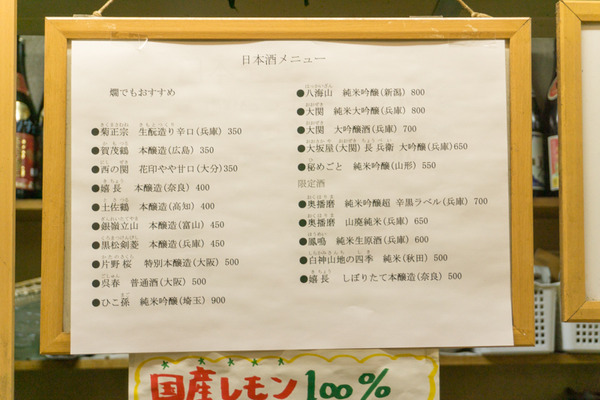 日本酒メニュー
燗でもおすすめ
●菊正宗 生酛造り辛口(兵庫) 350
●賀茂鶴 本醸造(広島) 350
●西の関 花印やや甘口(大分)350
●嬉長 本醸造(奈良) 400
●土佐鶴 本醸造(高知) 400
●銀嶺立山 本醸造(富山) 450
●黒松剣菱 本醸造(兵庫) 450
●片野桜 特別本醸造(大阪) 500
●呉春 普通酒(大阪) 500
●ひこ孫 純米吟醸(埼玉) 900
●八海山 純米吟醸(新潟) 800
●大関 純米大吟醸(兵庫) 800
●大関 大吟醸(兵庫) 700
●大坂屋(大関)長兵衛 大吟醸(兵庫)650
●秘めごと 純米吟醸(山形) 550
限定酒
●奥播磨 純米吟醸超 辛黒ラベル(兵庫) 700
●奥播磨 山廃純米(兵庫) 650
●鳳鳴 純米生原酒(兵庫) 600
●白神山地の四季 純米(秋田) 500
●嬉長 しぼりたて本醸造(奈良) 500
国産レモン100%